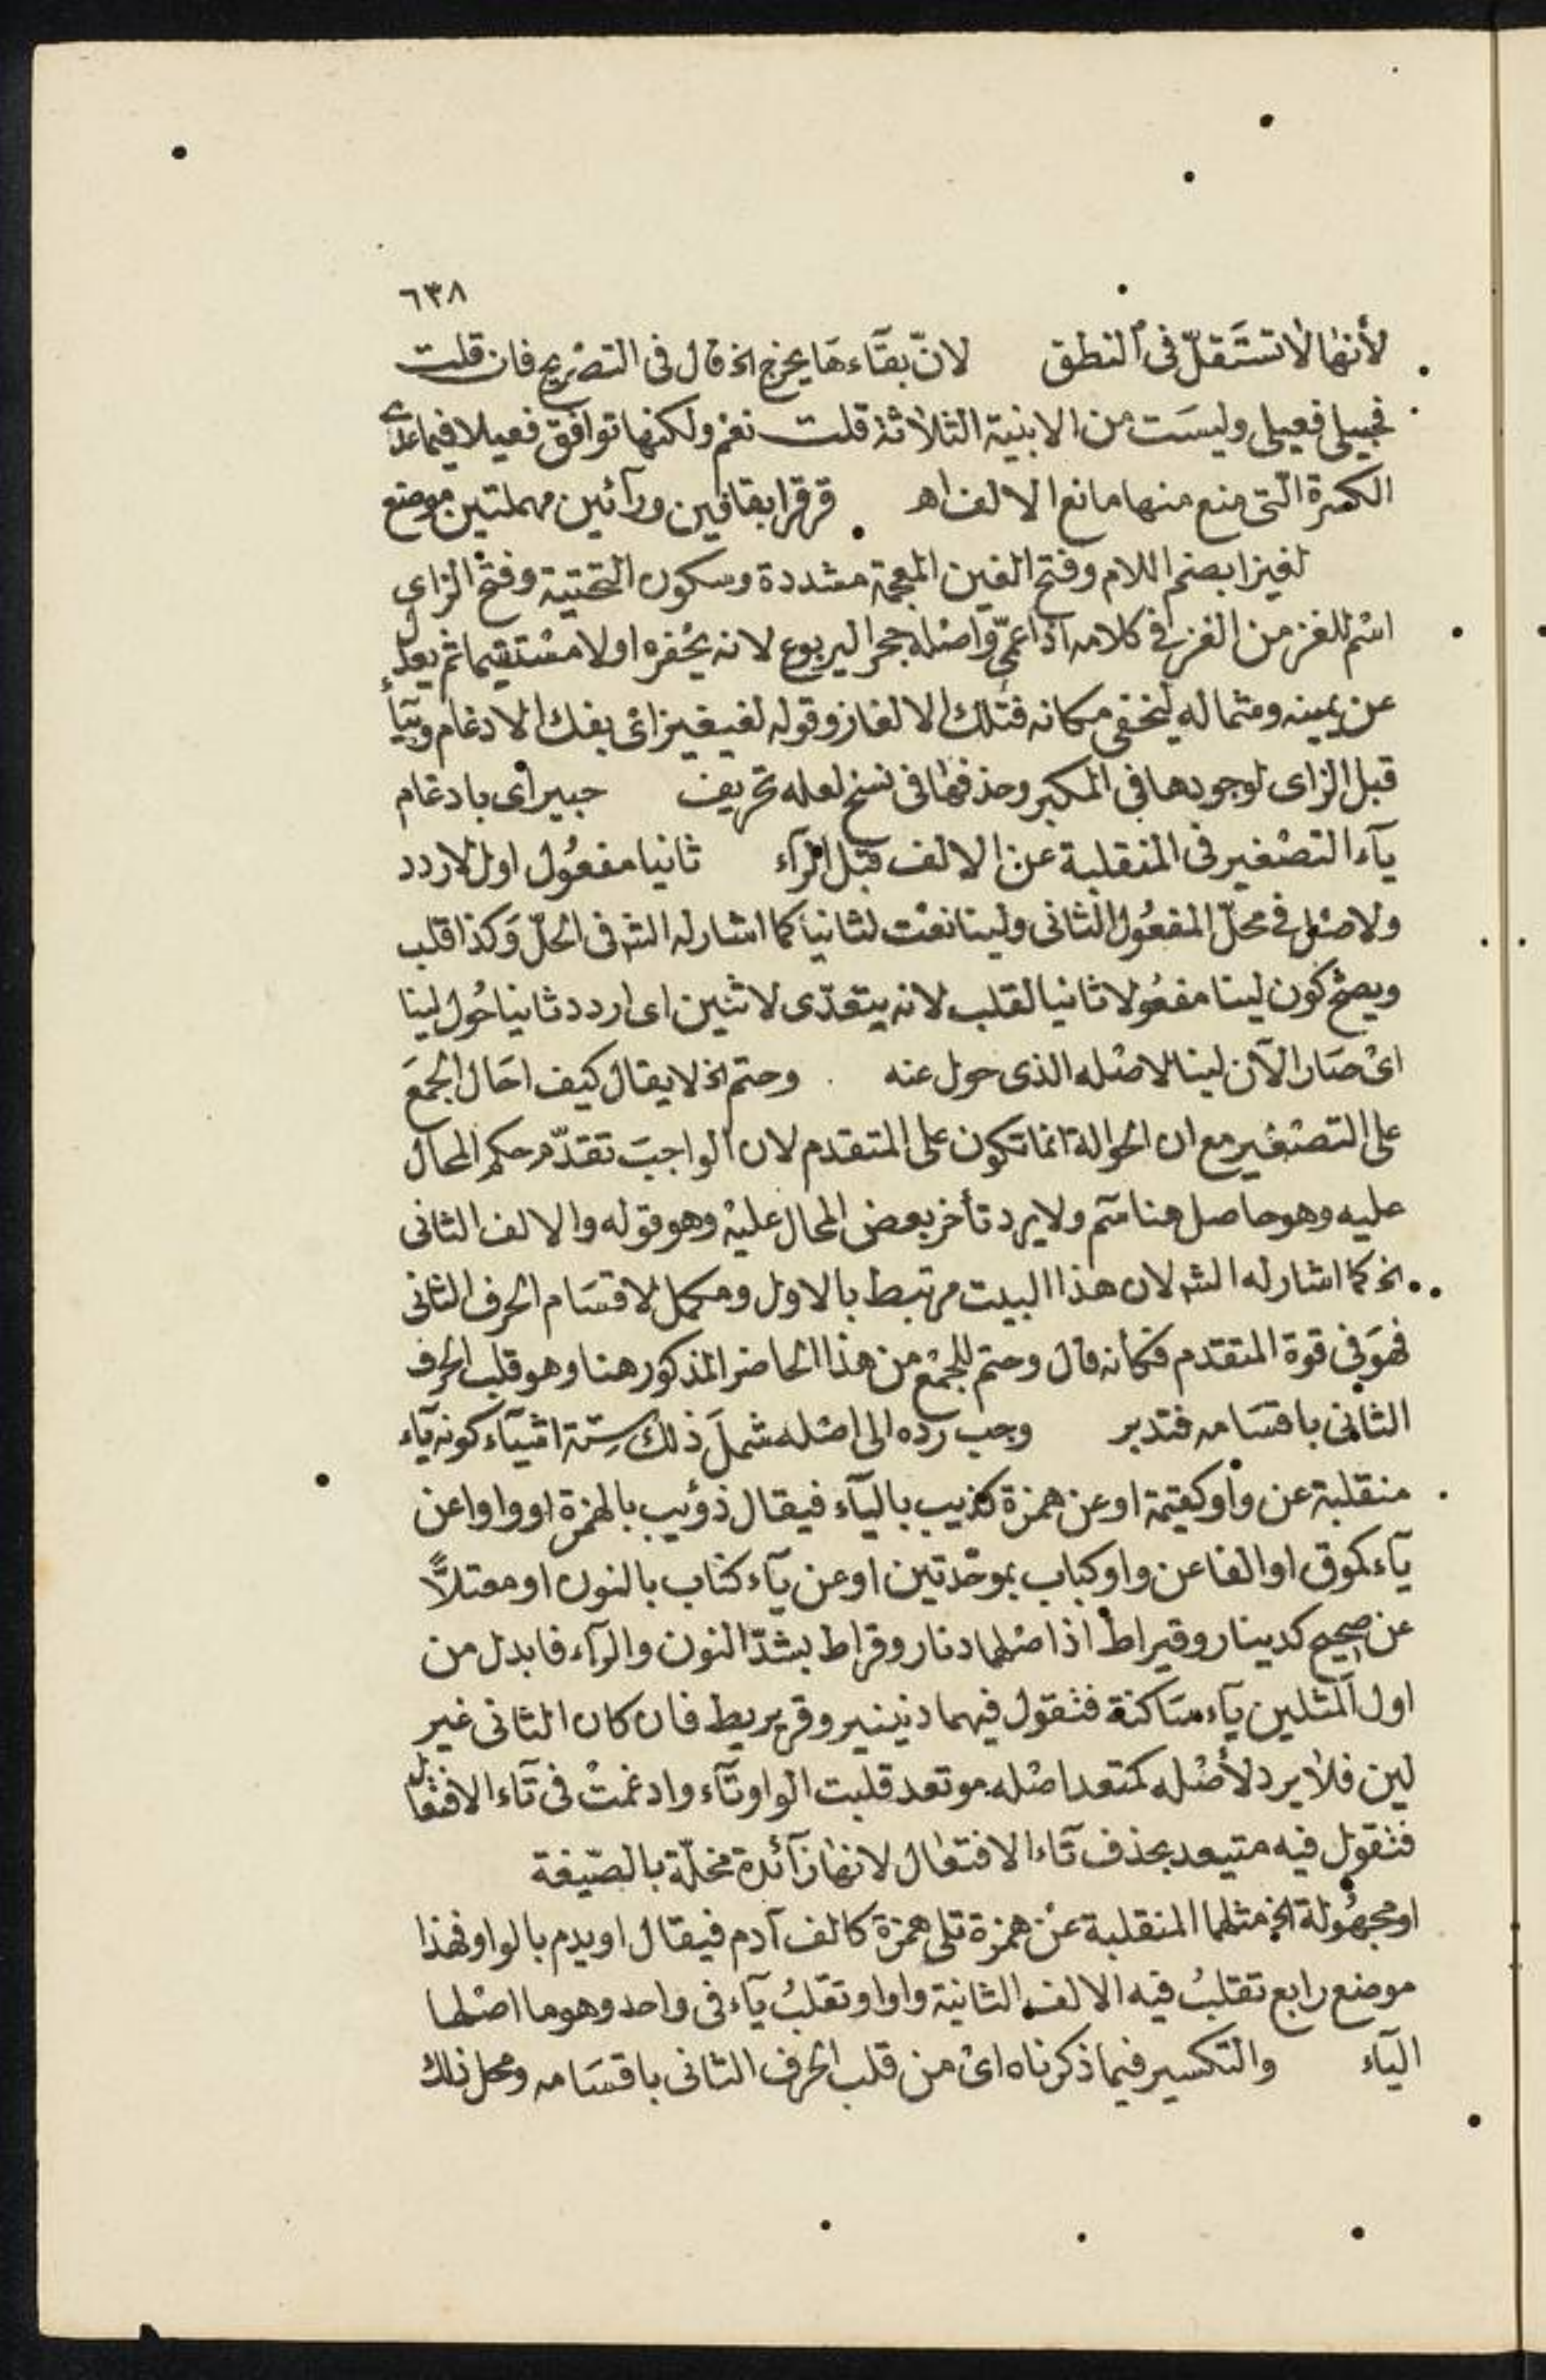 ٦٣٨
لأنها لا تستقلّ فى النطق لانّ بقآءها يخرج الخ قال فى التصريح فان قلت
فحبيلى فعيلى وليست من الابنية الثلاثة قلت نعم ولكنها توافق فعيلا فيما عدى
الكسرة التى منع منها مانع الالف اهـ قرقرا بقافين ورآئين مهملتين موضع
لغيزا بضم اللام وفتح الغين المعجمة مشددة وسكون التحتية وفتح الزاى
اسْم للغز من الغز فى كلامه اذا عمّى واصْله جحر اليربوع لانه يحْفره اولا مسْتقيما ثم يعدل
عن يمينه وشماله ليخفى مكانه فتلك الالغاز وقوله لغيغيز اى بفك الادغام وبيآء
قبل الزاى لوجودها فى المكبر وحذفها فى نسخ لعله تحريف حبير اى بادغام
يآء التصْغير فى المنقلبة عن الالف قبل الرآء ثانيا مفعُول اول لاردد
ولاصْل فى محلّ المفعُول الثانى ولينا نعْت لثانيا كما اشار له الشه فى الحلّ وَكذا قلب
ويصحّ كون لينا مفعُولا ثانيا لقلب لانه يتعدّى لاثنين اى اردد ثانيا حُول لينا
اىْ صَار الآن لينا لاصْله الذى حول عنه . وحتم الخ لا يقال كيف احَال الجمعَ
على التصْغير مع ان الحوالة انما تكون على المتقدم لان الواجبَ تقدّم حكم المحال
عليه وهو حاصل هنا مّم ولا يرد تأخر بعض المحال عليْه وهو قوله والالف الثانى
الخ كما اشار له الشه لان هذا البيت مرتبط بالاول ومكمل لاقسَام الحرف الثانى
فهوَ فى قوة المتقدم فكأنه قال وحتم للجمْع من هذا الحاضر المذكور هنا وهو قلب الحرف
الثانى باقسَامه فتدبر وجب رده الى اصْله شملَ ذلك ستة اشيآء كونه يآء
منقلبة عن واو كقيمة او عن همزة كذيب باليآء فيقال ذؤيب بالهمزة او واوا عن
يآء كموق او الفا عن واو كباب بموحّدتين او عن يآء كناب بالنون او معتلاًّ
عن صحيح كدينار وقيراط اذ اصْلهما دنار وقراط بشدّ النون والرآء فابدل من
اول المثلين يآء سَاكنة فتقول فيهما دنينير وقريريط فان كان الثانى غير
لين فلا يرد لأصْله كمتعد اصْله موتعد قلبت الواو تآء وادغمتْ فى تآء الافتعال
فتقول فيه متيعد بحذف تآء الافتعال لانها زآئدة مخلّة بالصّيغة
او مجهُولة الخ مثلها المنقلبة عنْ همزة تلى همزة كالف آدم فيقال اويدم بالواو فهذا
موضع رابع تقلبُ فيه الالف الثانية واوا وتقلبُ يآء فى واحد وهو ما اصْلها
اليآء والتكسير فيما ذكرناه اىْ من قلب الحرف الثانى باقسَامه ومحل ذلك